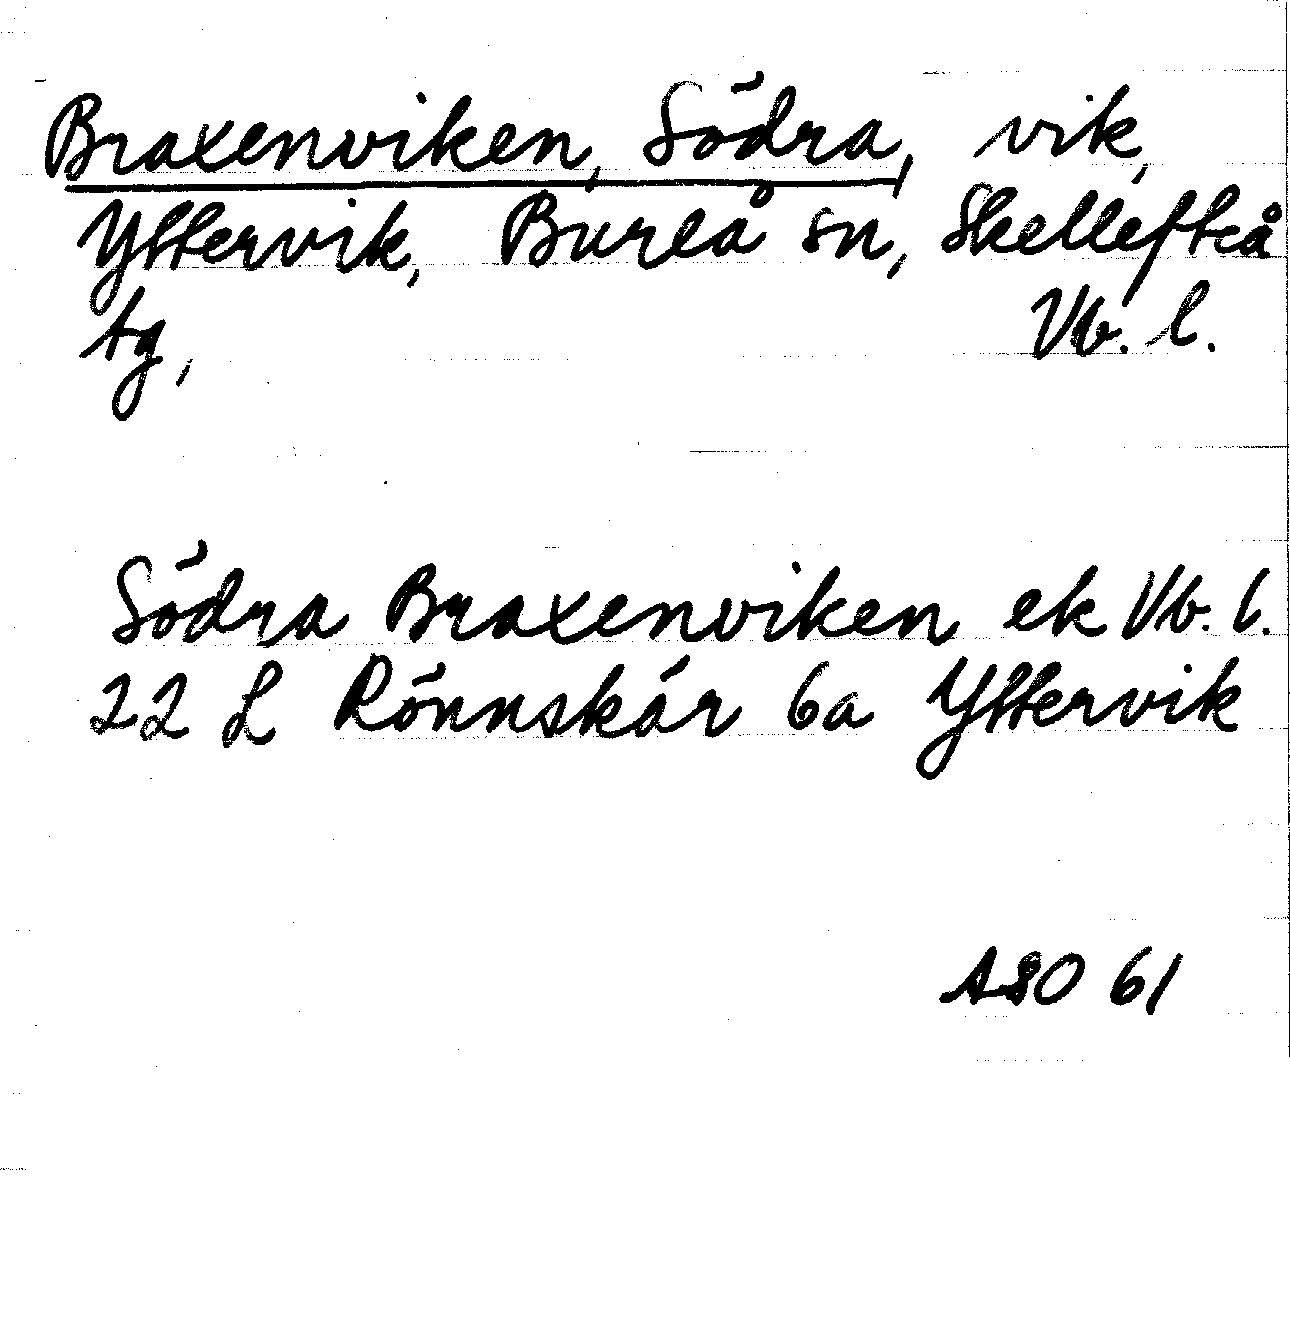 Braxenviken, Södra, vik,
Yttervik, Bureå sn, Skellefteå
tg, Vb. l.
Södra Braxenviken ek Vb. l.
22 L Rönnskär 6a Yttervik
ASO 61